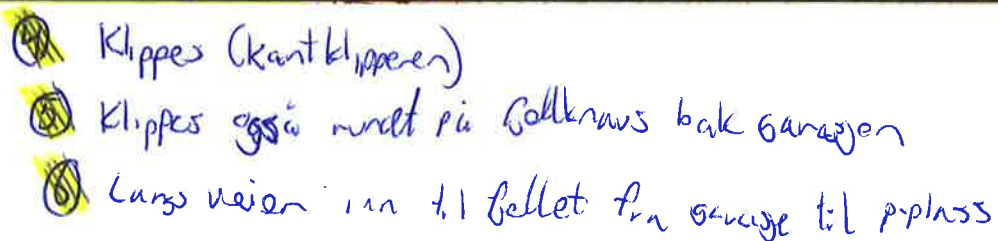 ④ Klippes (kantklipperen)
⑤ Klippes også rundt på kollknaus bak garasjen
⑥ Langs veien inn til fjellet fra garasje til p-plass